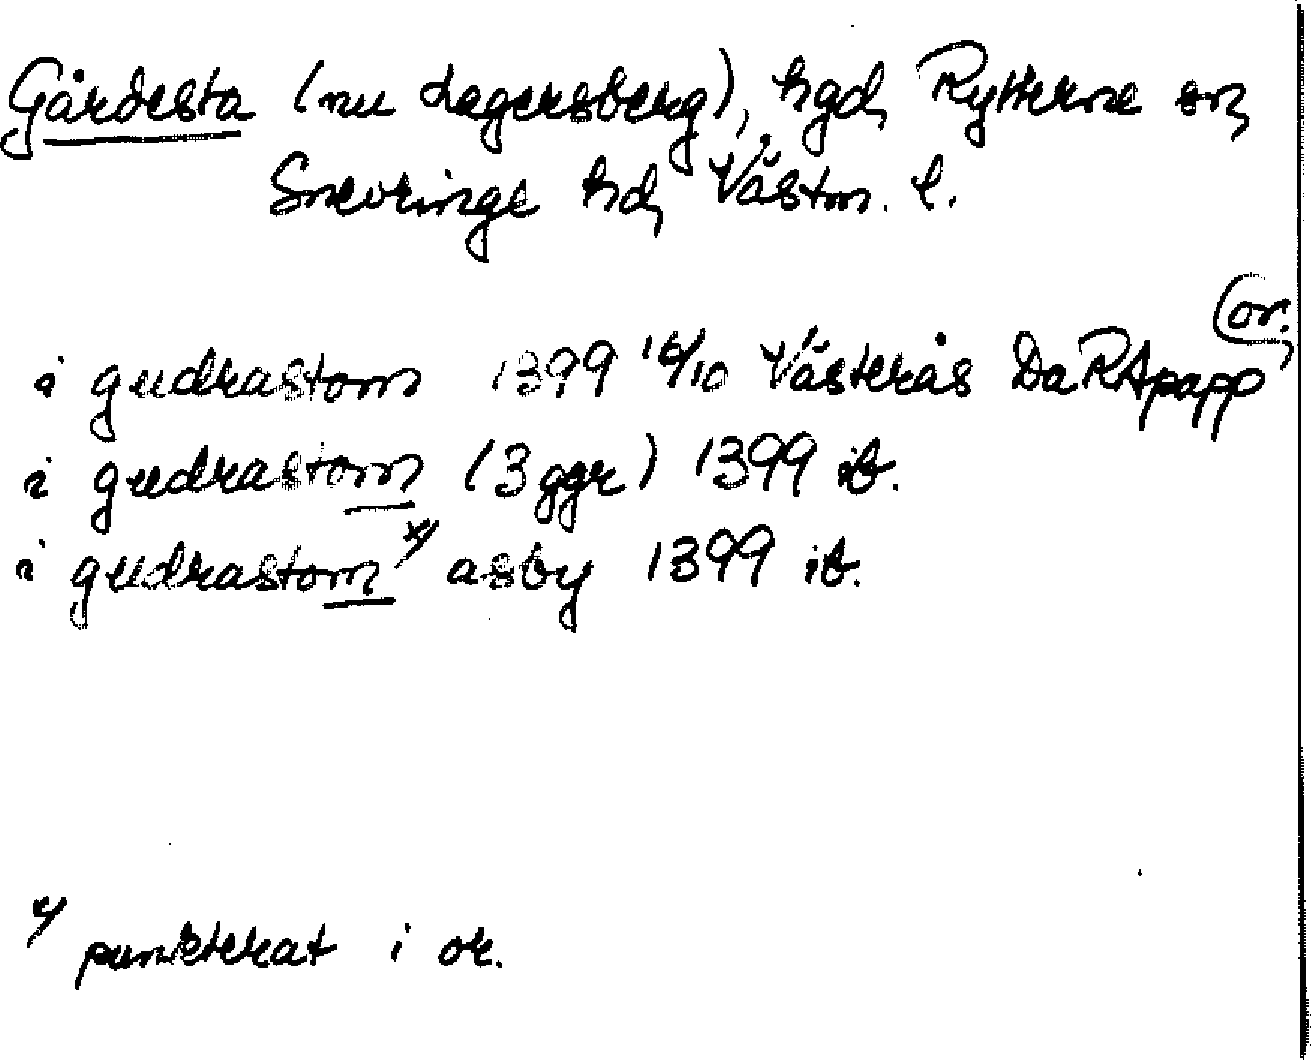 Gårdesta (nu Lagersberg), hgd, Rytterne sn,
Snevringe hd, Västm. l.
(or.
i gudrastom 1399 16/10 Västerås DaRApapp
i gudrastom (3 ggr) 1399 ib.
i gudrastom x) asby 1399 ib.
x) punkterat i or.